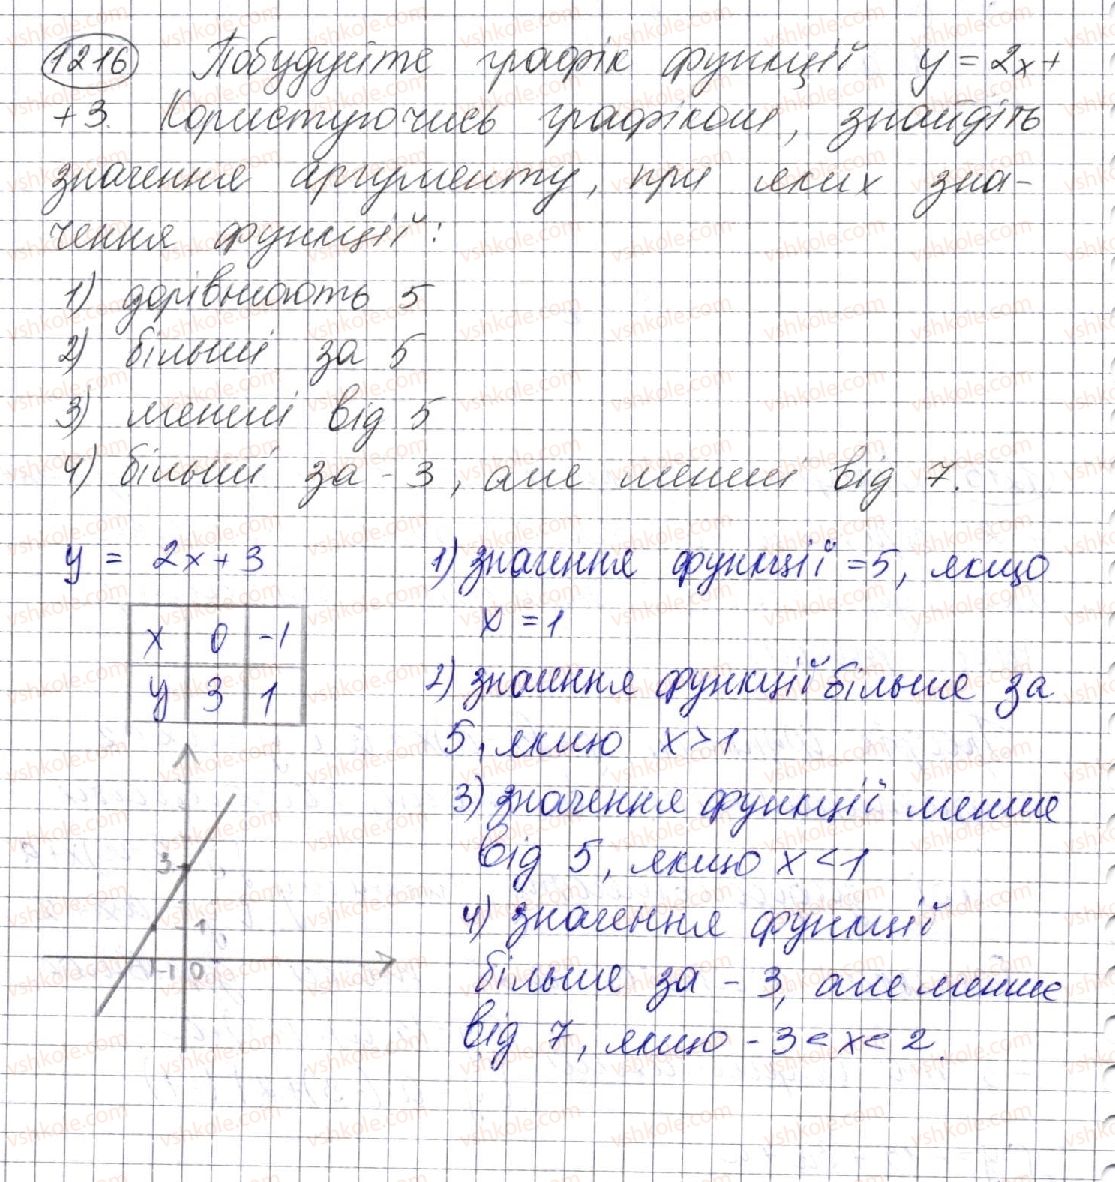 1216 Побудуйте графік функції y = 2x +
+ 3. Користуючись графіком, знайдіть
значення аргументу, при яких зна-
чення функції:
1) дорівнюють 5
2) більші за 5
3) менші від 5
4) більші за - 3, але менші від 7.
y = 2x + 3
x 0 -1
y 3 1
3
1
-1 0
1) значення функції = 5, якщо
x = 1
2) значення функції більше за
5, якщо x > 1
3) значення функції менше
від 5, якщо x < 1
4) значення функції
більше за - 3, але менше
від 7, якщо - 3 < x < 2.
vshkole.com